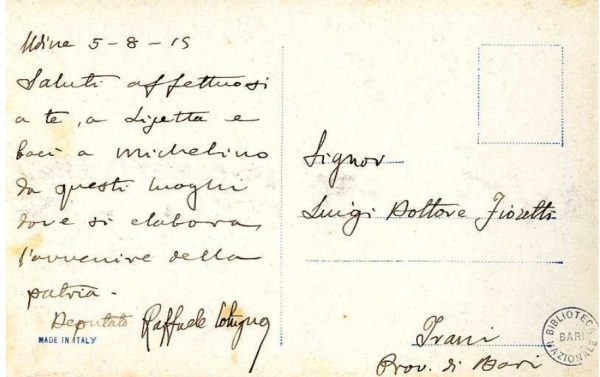 Udine 5-8-15
Saluti affettuosi
a te, a Ligetta e
baci a Michelino
da questi luoghi
dove si elabora
l'avvenire della
patria.
Deputato Raffaele Cotugno
MADE IN ITALY
Signor
Luigi Dottore Fioretti
Trani
Prov. di Bari
BIBLIOTECA
BARI
NAZIONALE